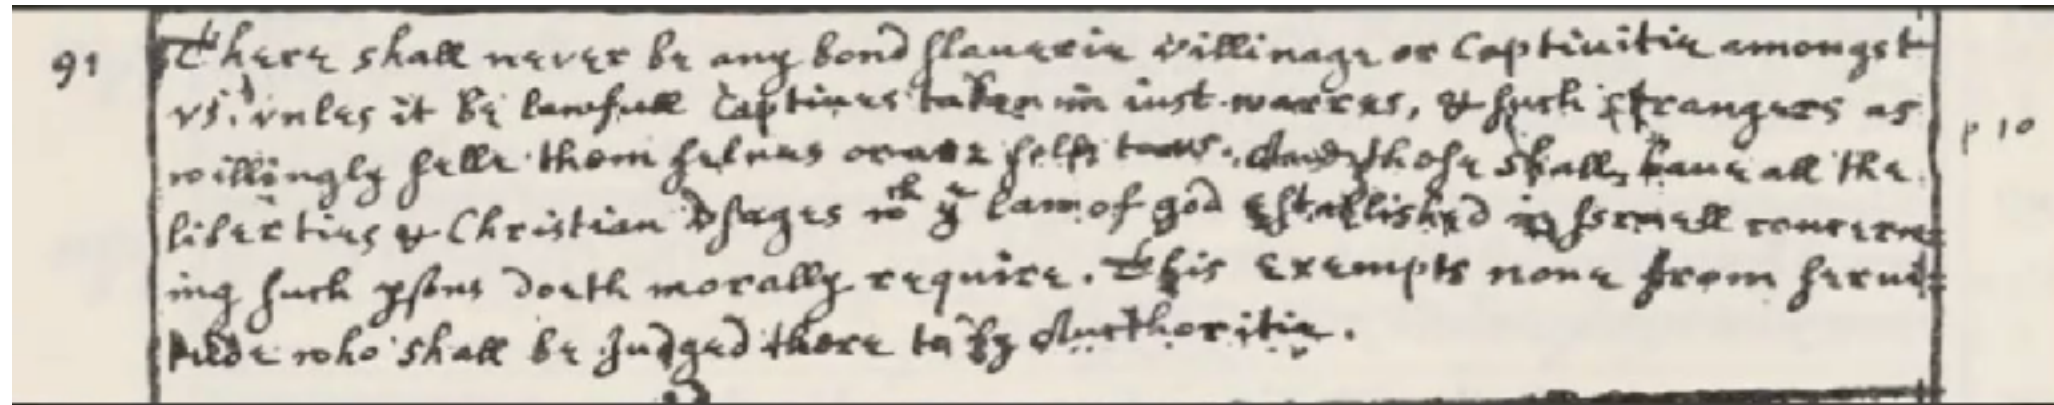 91 There shall never be any bond slauerie villinage or Captiuitie amongst
vs. vnles it be lawfull Captiues taken in iust warres, & such strangers as p 10
willingly selle themselues or are solde to vs. And those shall haue all the
liberties & Christian vsages wch ye law of god established in Jsraell concern=
ing such psons doeth morally require. This exempts none from serui=
tude who shall be Judged there to by Authoritie.